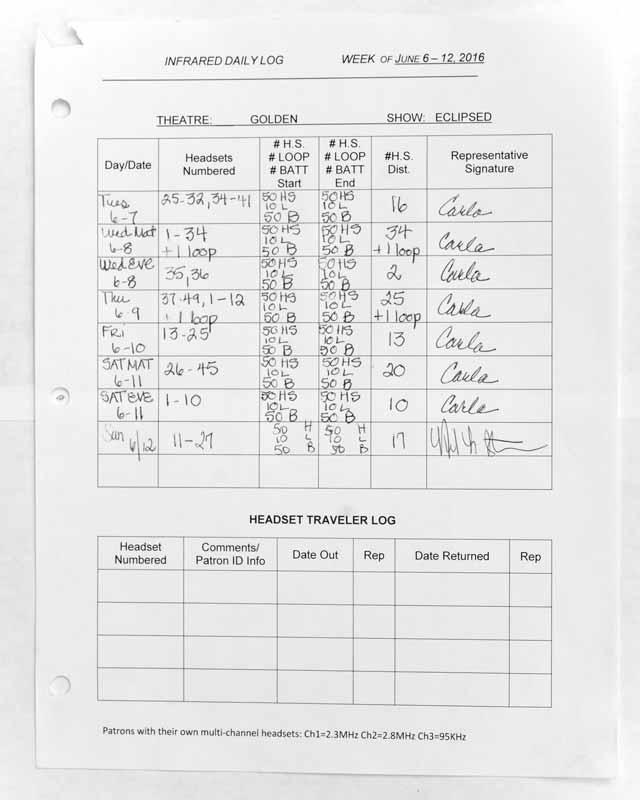 INFRARED DAILY LOG WEEK OF JUNE 6 – 12, 2016
THEATRE: GOLDEN SHOW: ECLIPSED
Day/Date Headsets Numbered # H.S. # LOOP # BATT Start # H.S. # LOOP # BATT End #H.S. Dist. Representative Signature
Tues 6-7 25-32, 34-41 50 HS 10 L 50 B 50 HS 10 L 50 B 16 Carla
Wed Mat 6-8 1-34 +1 loop 50 HS 10 L 50 B 50 HS 10 L 50 B 34 +1 loop Carla
Wed Eve 6-8 35, 36 50 HS 10 L 50 B 50 HS 10 L 50 B 2 Carla
Thu 6-9 37-49, 1-12 +1 loop 50 HS 10 L 50 B 50 HS 10 L 50 B 25 +1 loop Carla
FRI 6-10 13-25 50 HS 10 L 50 B 50 HS 10 L 50 B 13 Carla
SAT MAT 6-11 26-45 50 HS 10 L 50 B 50 HS 10 L 50 B 20 Carla
SAT EVE 6-11 1-10 50 HS 10 L 50 B 50 HS 10 L 50 B 10 Carla
Sun 6/12 11-27 50 H 10 L 50 B 50 H 10 L 50 B 17
HEADSET TRAVELER LOG
Headset Numbered Comments/ Patron ID Info Date Out Rep Date Returned Rep
Patrons with their own multi-channel headsets: Ch1=2.3MHz Ch2=2.8MHz Ch3=95KHz